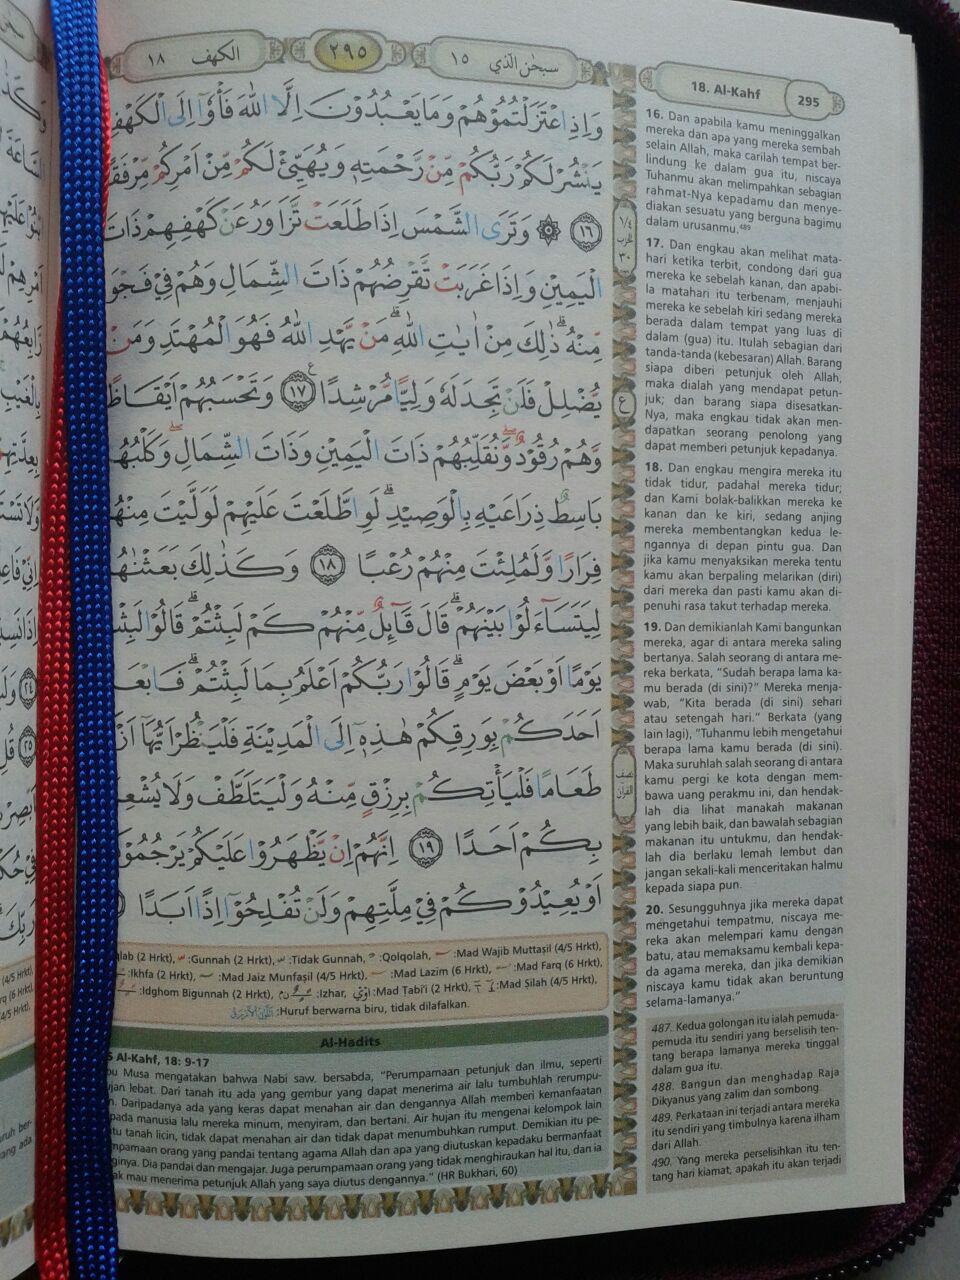 الكهف ١٨
٢٩٥
سبحن الّذي ١٥
وَاِذِ اعْتَزَلْتُمُوْهُمْ وَمَا يَعْبُدُوْنَ اِلَّا اللّٰهَ فَأْوٗٓا اِلَى الْكَهْفِ
يَنْشُرْ لَكُمْ رَبُّكُمْ مِّنْ رَّحْمَتِهٖ وَيُهَيِّئْ لَكُمْ مِّنْ اَمْرِكُمْ مِّرْفَقًا
١٦ ۞ وَتَرَى الشَّمْسَ اِذَا طَلَعَتْ تَّزَاوَرُ عَنْ كَهْفِهِمْ ذَاتَ
الْيَمِيْنِ وَاِذَا غَرَبَتْ تَّقْرِضُهُمْ ذَاتَ الشِّمَالِ وَهُمْ فِيْ فَجْوَ
مِّنْهُۗ ذٰلِكَ مِنْ اٰيٰتِ اللّٰهِۗ مَنْ يَّهْدِ اللّٰهُ فَهُوَ الْمُهْتَدِ وَمَنْ
يُّضْلِلْ فَلَنْ تَجِدَ لَهٗ وَلِيًّا مُّرْشِدًا ١٧ وَتَحْسَبُهُمْ اَيْقَاظًا
وَّهُمْ رُقُوْدٌ وَّنُقَلِّبُهُمْ ذَاتَ الْيَمِيْنِ وَذَاتَ الشِّمَالِ وَكَلْبُهُمْ
بَاسِطٌ ذِرَاعَيْهِ بِالْوَصِيْدِۗ لَوِ اطَّلَعْتَ عَلَيْهِمْ لَوَلَّيْتَ مِنْهُمْ
فِرَارًا وَّلَمُلِئْتَ مِنْهُمْ رُعْبًا ١٨ وَكَذٰلِكَ بَعَثْنٰهُمْ
لِيَتَسَاۤءَلُوْا بَيْنَهُمْۗ قَالَ قَاۤىِٕلٌ مِّنْهُمْ كَمْ لَبِثْتُمْۗ قَالُوْا لَبِثْنَا
يَوْمًا اَوْ بَعْضَ يَوْمٍۗ قَالُوْا رَبُّكُمْ اَعْلَمُ بِمَا لَبِثْتُمْۗ فَابْعَ
اَحَدَكُمْ بِوَرِقِكُمْ هٰذِهٖٓ اِلَى الْمَدِيْنَةِ فَلْيَنْظُرْ اَيُّهَآ اَزْ
طَعَامًا فَلْيَأْتِكُمْ بِرِزْقٍ مِّنْهُ وَلْيَتَلَطَّفْ وَلَا يُشْعِرَ
بِكُمْ اَحَدًا ١٩ اِنَّهُمْ اِنْ يَّظْهَرُوْا عَلَيْكُمْ يَرْجُمُوْ
اَوْ يُعِيْدُوْكُمْ فِيْ مِلَّتِهِمْ وَلَنْ تُفْلِحُوْٓا اِذًا اَبَدًا
qlab (2 Hrkt), :Gunnah (2 Hrkt), :Tidak Gunnah, :Qolqolah, :Mad Wajib Muttaşil (4/5 Hrkt),
:Ikhfa (2 Hrkt), :Mad Jaiz Munfaşil (4/5 Hrkt), :Mad Lazim (6 Hrkt), :Mad Farq (6 Hrkt),
:Idghom Bigunnah (2 Hrkt), :Izhar, :Mad Ṭabi'i (2 Hrkt), :Mad Şilah (4/5 Hrkt),
:Huruf berwarna biru, tidak dilafalkan.
Al-Hadits
Al-Kahf, 18: 9-17
bu Musa mengatakan bahwa Nabi saw. bersabda, “Perumpamaan petunjuk dan ilmu, seperti
ujan lebat. Dari tanah itu ada yang gembur yang dapat menerima air lalu tumbuhlah rerumpu-
n. Daripadanya ada yang keras dapat menahan air dan dengannya Allah memberi kemanfaatan
pada manusia lalu mereka minum, menyiram, dan bertani. Air hujan itu mengenai kelompok lain
tu tanah licin, tidak dapat menahan air dan tidak dapat menumbuhkan rumput. Demikian itu pe-
mpamaan orang yang pandai tentang agama Allah dan apa yang diutuskan kepadaku bermanfaat
ginya. Dia pandai dan mengajar. Juga perumpamaan orang yang tidak menghiraukan hal itu, dan ia
ak mau menerima petunjuk Allah yang saya diutus dengannya.” (HR Bukhari, 60)
١/٤
الحزب
٣٠
ع
نصف
القرآن
18. Al-Kahf
295
16. Dan apabila kamu meninggalkan
mereka dan apa yang mereka sembah
selain Allah, maka carilah tempat ber-
lindung ke dalam gua itu, niscaya
Tuhanmu akan melimpahkan sebagian
rahmat-Nya kepadamu dan menye-
diakan sesuatu yang berguna bagimu
dalam urusanmu.⁴⁸⁹
17. Dan engkau akan melihat mata-
hari ketika terbit, condong dari gua
mereka ke sebelah kanan, dan apabi-
la matahari itu terbenam, menjauhi
mereka ke sebelah kiri sedang mereka
berada dalam tempat yang luas di
dalam (gua) itu. Itulah sebagian dari
tanda-tanda (kebesaran) Allah. Barang
siapa diberi petunjuk oleh Allah,
maka dialah yang mendapat petun-
juk; dan barang siapa disesatkan-
Nya, maka engkau tidak akan men-
dapatkan seorang penolong yang
dapat memberi petunjuk kepadanya.
18. Dan engkau mengira mereka itu
tidak tidur, padahal mereka tidur;
dan Kami bolak-balikkan mereka ke
kanan dan ke kiri, sedang anjing
mereka membentangkan kedua le-
ngannya di depan pintu gua. Dan
jika kamu menyaksikan mereka tentu
kamu akan berpaling melarikan (diri)
dari mereka dan pasti kamu akan di-
penuhi rasa takut terhadap mereka.
19. Dan demikianlah Kami bangunkan
mereka, agar di antara mereka saling
bertanya. Salah seorang di antara me-
reka berkata, “Sudah berapa lama ka-
mu berada (di sini)?” Mereka menja-
wab, “Kita berada (di sini) sehari
atau setengah hari.” Berkata (yang
lain lagi), “Tuhanmu lebih mengetahui
berapa lama kamu berada (di sini).
Maka suruhlah salah seorang di antara
kamu pergi ke kota dengan mem-
bawa uang perakmu ini, dan hendak-
lah dia lihat manakah makanan
yang lebih baik, dan bawalah sebagian
makanan itu untukmu, dan hendak-
lah dia berlaku lemah lembut dan
jangan sekali-kali menceritakan halmu
kepada siapa pun.
20. Sesungguhnya jika mereka dapat
mengetahui tempatmu, niscaya me-
reka akan melempari kamu dengan
batu, atau memaksamu kembali kepa-
da agama mereka, dan jika demikian
niscaya kamu tidak akan beruntung
selama-lamanya.”
487. Kedua golongan itu ialah pemuda-
pemuda itu sendiri yang berselisih ten-
tang berapa lamanya mereka tinggal
dalam gua itu.
488. Bangun dan menghadap Raja
Dikyanus yang zalim dan sombong.
489. Perkataan ini terjadi antara mereka
itu sendiri yang timbulnya karena ilham
dari Allah.
490. Yang mereka perselisihkan itu ten-
tang hari kiamat, apakah itu akan terjadi